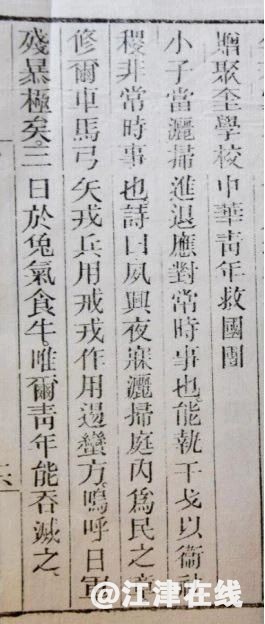 贈聚奎學校中華靑年救國團
小子當灑掃進退應對常時事也。能執干戈以衞社
稷非常時事也。詩曰夙興夜寐灑掃庭內爲民之章
修爾車馬弓矢戎兵用戒戎作用逷蠻方。嗚呼日軍
殘暴極矣。三日於兔氣食牛。唯爾靑年能吞滅之。
@江津在线